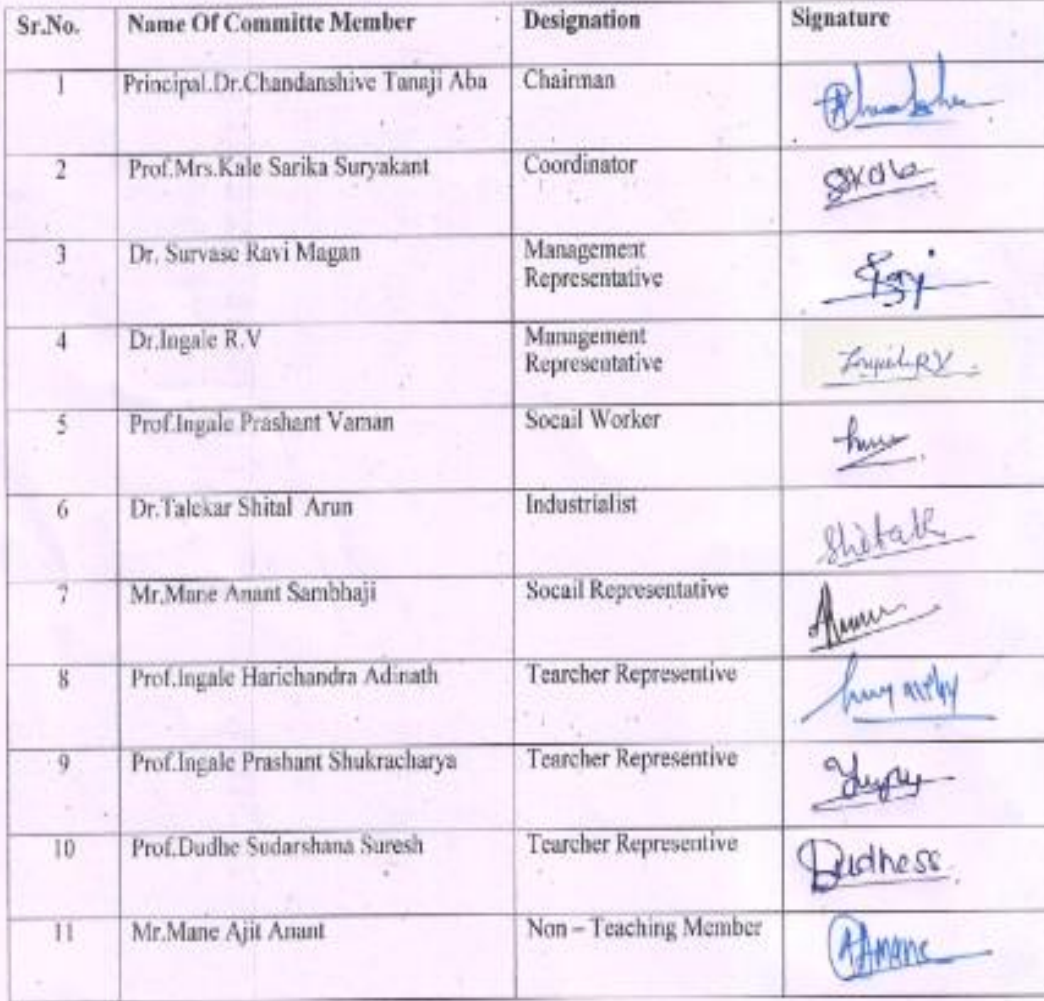 Sr.No. Name Of Committe Member Designation Signature
1 Principal.Dr.Chandanshive Tanaji Aba Chairman
2 Prof.Mrs.Kale Sarika Suryakant Coordinator SKale
3 Dr. Survase Ravi Magan Management
Representative
4 Dr.Ingale R.V Management
Representative Ingale RV
5 Prof.Ingale Prashant Vaman Socail Worker
6 Dr.Talekar Shital Arun Industrialist
7 Mr.Mane Anant Sambhaji Socail Representative
8 Prof.Ingale Harichandra Adinath Tearcher Representive
9 Prof.Ingale Prashant Shukracharya Tearcher Representive
10 Prof.Dudhe Sudarshana Suresh Tearcher Representive Dudhess
11 Mr.Mane Ajit Anant Non – Teaching Member AAMane